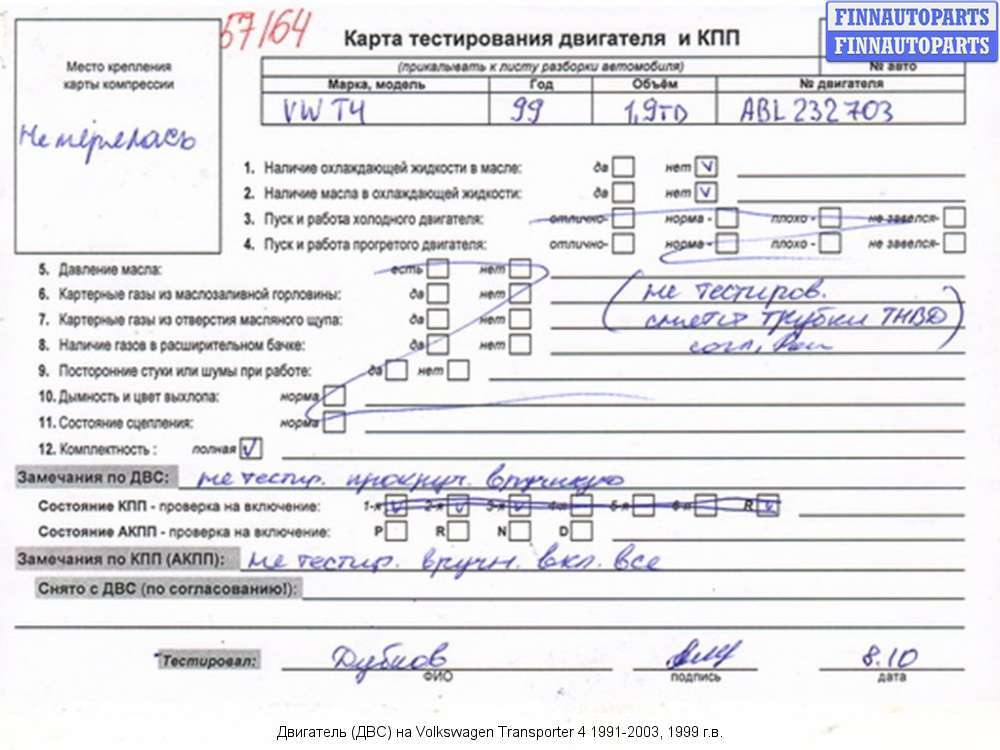 57164
FINNAUTOPARTS
FINNAUTOPARTS
Карта тестирования двигателя и КПП
(прикалывать к листу разборки автомобиля)
№ авто
Место крепления
карты компрессии
Не мерялась
Марка, модель Год Объём № двигателя
VW T4 99 1,9TD ABL 232703
1. Наличие охлаждающей жидкости в масле: да нет V
2. Наличие масла в охлаждающей жидкости: да нет V
3. Пуск и работа холодного двигателя: отлично- норма - плохо - не завелся-
4. Пуск и работа прогретого двигателя: отлично- норма - плохо - не завелся-
5. Давление масла: есть нет
6. Картерные газы из маслозаливной горловины: да нет
7. Картерные газы из отверстия масляного щупа: да нет
8. Наличие газов в расширительном бачке: да нет
(не тестиров.
трубки ТНВД)
9. Посторонние стуки или шумы при работе: да нет
10. Дымность и цвет выхлопа: норма
11. Состояние сцепления: норма
12. Комплектность : полная V
Замечания по ДВС: не тестир. прокруч. вручную
Состояние КПП - проверка на включение: 1-я V 2-я V 3-я V 4-я 5-я 6-я R V
Состояние АКПП - проверка на включение: P R N D
Замечания по КПП (АКПП): не тестир. вручн. вкл. все
Снято с ДВС (по согласованию!):
Тестировал: Дубков 8.10
ФИО подпись дата
Двигатель (ДВС) на Volkswagen Transporter 4 1991-2003, 1999 г.в.